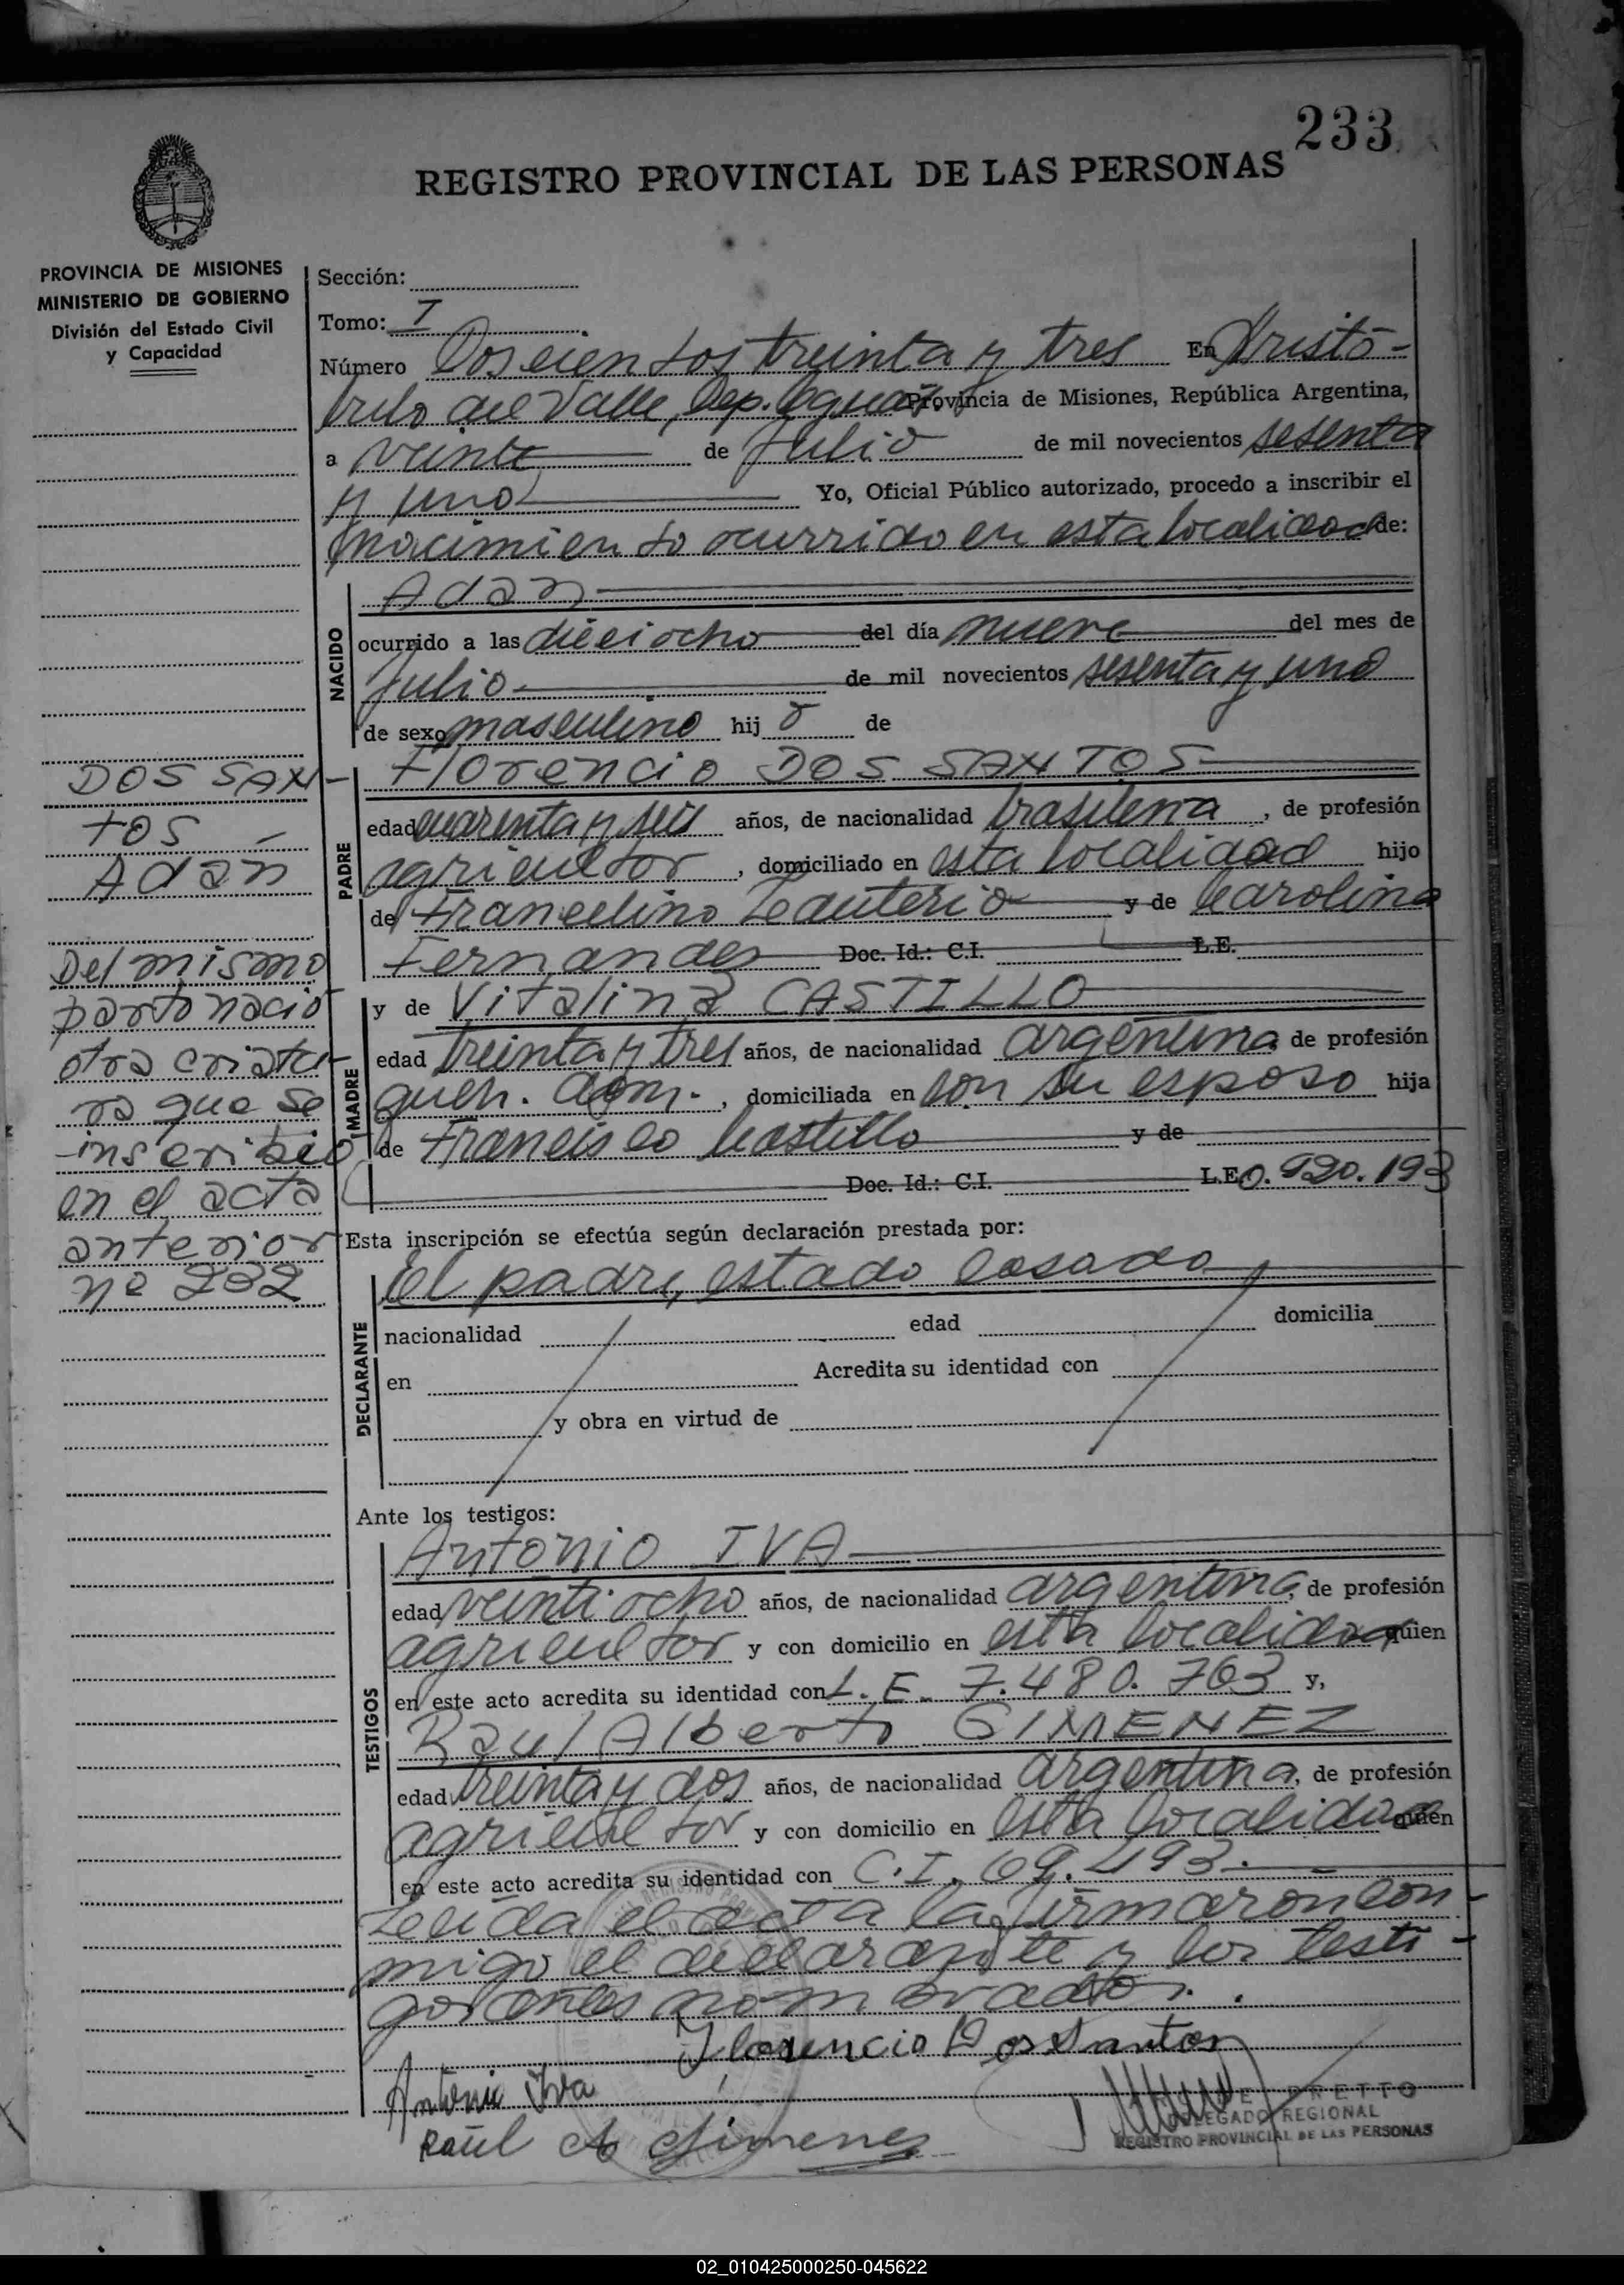 233
REGISTRO PROVINCIAL DE LAS PERSONAS
PROVINCIA DE MISIONES
MINISTERIO DE GOBIERNO
División del Estado Civil
y Capacidad
Sección:
Tomo: I
Número Doscientos treinta y tres En Aristó-
bulo del Valle, Dep. Provincia de Misiones, República Argentina,
a veinte de Julio de mil novecientos sesenta
y uno Yo, Oficial Público autorizado, procedo a inscribir el
nacimiento ocurrido en esta localidad de:
NACIDO
Adan
ocurrido a las dieciocho del día nueve del mes de
Julio de mil novecientos sesenta y uno
de sexo masculino hij o de
DOS SAN-
TOS
Adán
Del mismo
parto nació
otra criatu-
ra que se
inscribió
en el acta
anterior
nº 232
PADRE
Florencio DOS SANTOS
edad cuarenta y seis años, de nacionalidad brasilera, de profesión
agricultor, domiciliado en esta localidad hijo
de Francelino Leauterio y de Carolina
Fernandes Doc. Id.: C.I. L.E.
MADRE
y de Vitalina CASTILLO
edad treinta y tres años, de nacionalidad argentina de profesión
queh. dom., domiciliada en con su esposo hija
de Francisco Castillo y de
Doc. Id.: C.I. L.E 0.920.193
Esta inscripción se efectúa según declaración prestada por:
DECLARANTE
El padre, estado casado
nacionalidad edad domicilia
en Acredita su identidad con
y obra en virtud de
Ante los testigos:
TESTIGOS
Antonio IVA
edad veintiocho años, de nacionalidad argentina, de profesión
agricultor y con domicilio en esta localidad quien
en este acto acredita su identidad con L.E. 7.480.763 y,
Raul Alberto GIMENEZ
edad treinta y dos años, de nacionalidad argentina, de profesión
agricultor y con domicilio en esta localidad quien
en este acto acredita su identidad con C.I. 69.493.
Leída el acta la firmaron con-
migo el declarante y los testi-
gos antes nombrados.
Florencio Dos Santos
Antonio Iva
Raúl A Gimenez
PRETTO
DELEGADO REGIONAL
REGISTRO PROVINCIAL DE LAS PERSONAS
02_010425000250-045622